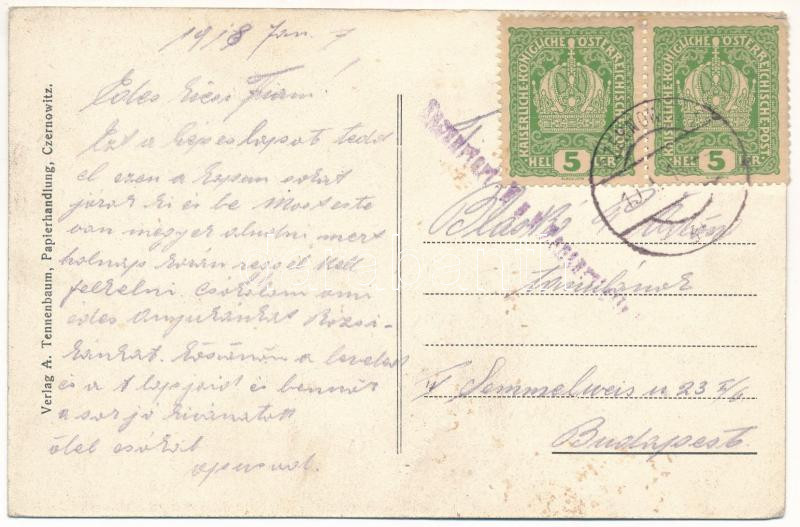 1918 Jan. 7
Edes kicsi Fiam!
Ezt a képes lapot tedd
el ezen a kapun sokat
járok ki és be Most este
van megyek aludni mert
holnap korán reggel kell
felkelni. Csókolom
édes Anyukánkat Rózsi-
kánkat. Köszönöm a leveled
és a t. lapjaid és bennük
a sok jó kivánatot
ölel csókol
apusod.
Verlag A. Tennenbaum, Papierhandlung, Czernowitz.
KAISERLICHE KÖNIGLICHE ÖSTERREICHISCHE POST
HEL 5 ER.
KAISERLICHE KÖNIGLICHE ÖSTERREICHISCHE POST
HEL 5 ER.
tanulónak
IV Semmelweis u 23
Budapest